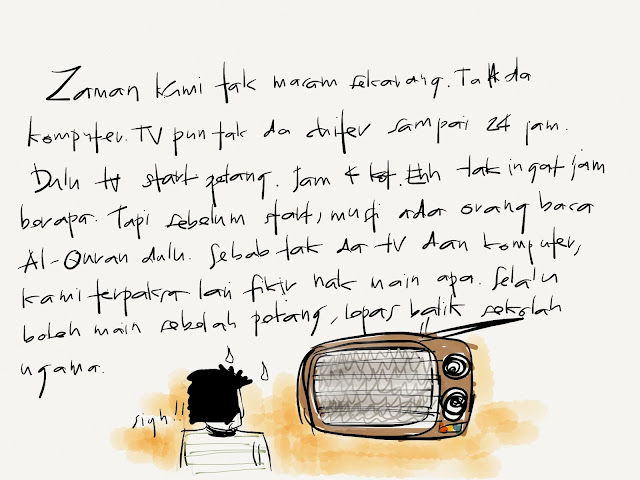 Zaman kami tak macam sekarang. Tak da
komputer. TV pun tak da siaran sampai 24 jam.
Dulu tv start petang. Jam 4 kot. Ehh tak ingat jam
berapa. Tapi sebelum start, musti ada orang baca
Al-Quran dulu. Sebab tak da tv dan komputer,
kami terpaksa lari fikir nak main apa. Selalu
boleh main sebelah petang, lepas balik sekolah
ugama.
sigh!!